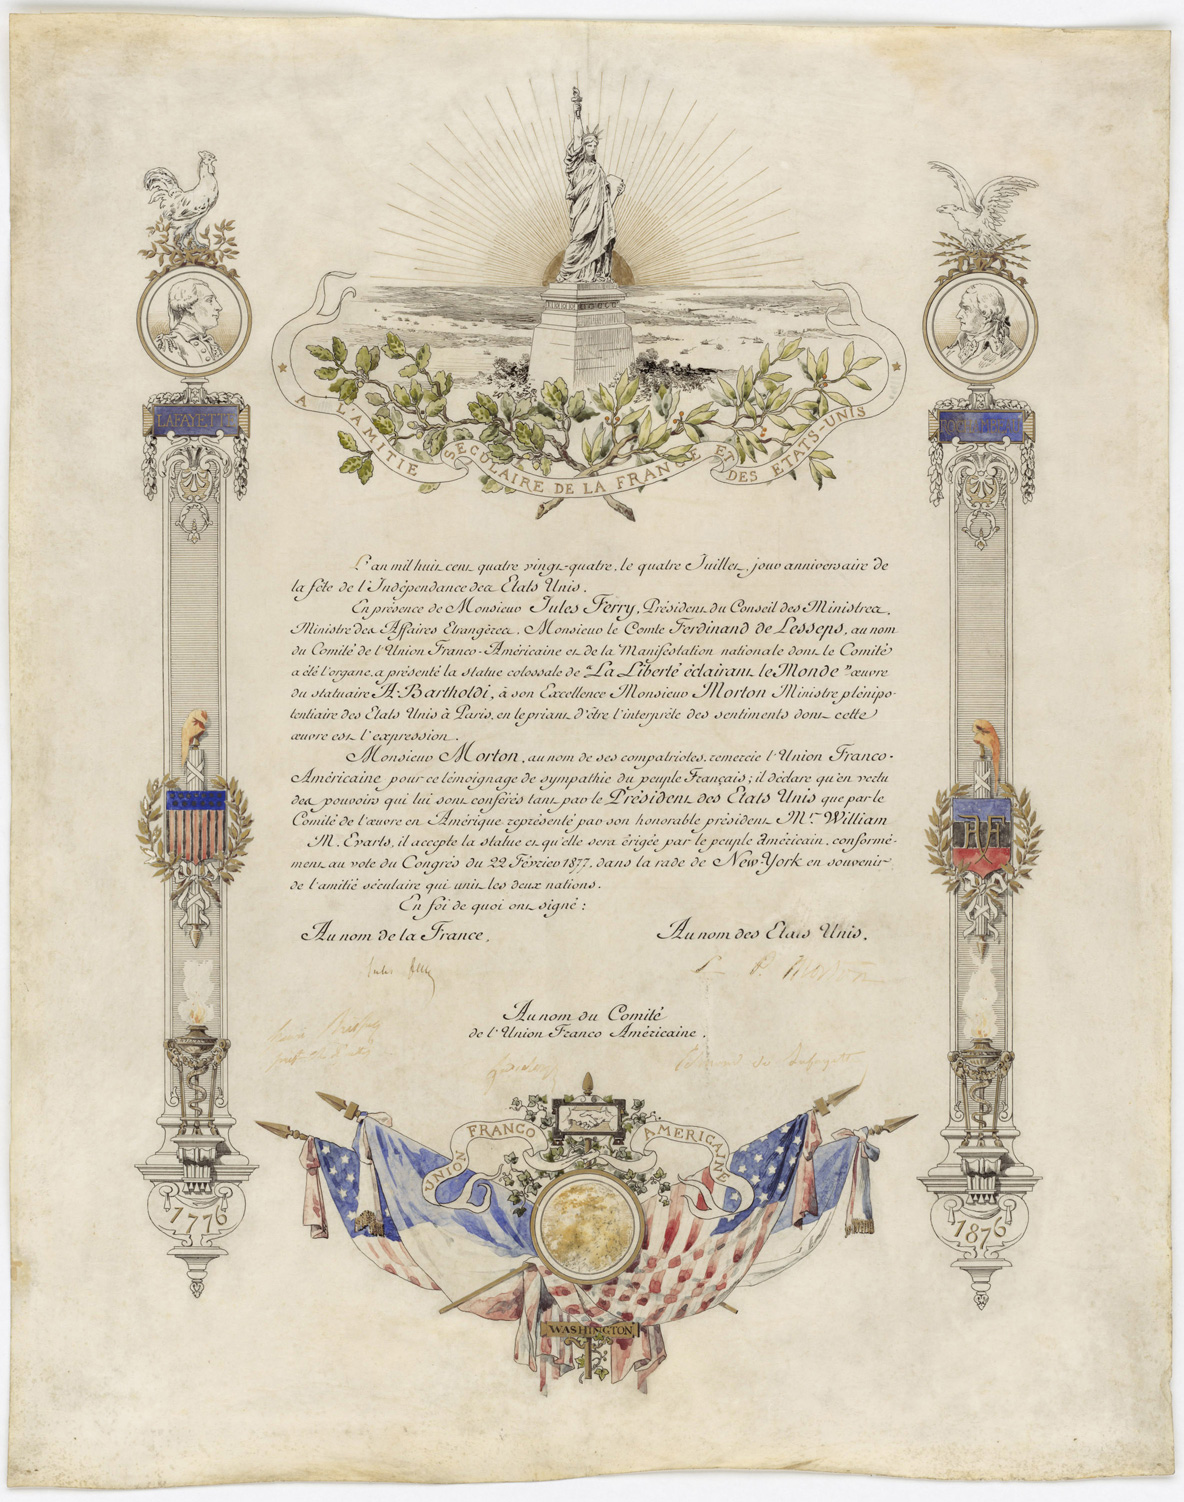 A L'AMITIE SECULAIRE DE LA FRANCE ET DES ETATS-UNIS
LAFAYETTE
L'an mil huit cent quatre vingt-quatre, le quatre Juillet, jour anniversaire de
la fête de l'Indépendance des Etats Unis.
En présence de Monsieur Jules Ferry, Président du Conseil des Ministres,
Ministre des Affaires Etrangères, Monsieur le Comte Ferdinand de Lesseps, au nom
du Comité de l'Union Franco-Américaine et de la Manifestation nationale dont le Comité
a été l'organe, a présenté la statue colossale de "La Liberté éclairant le Monde" œuvre
du statuaire A. Bartholdi, à son Excellence Monsieur Morton Ministre plénipo-
tentiaire des Etats Unis à Paris, en le priant d'être l'interprète des sentiments dont cette
œuvre est l'expression.
Monsieur Morton, au nom de ses compatriotes, remercie l'Union Franco-
Américaine pour ce témoignage de sympathie du peuple Français; il déclare qu'en vertu
des pouvoirs qui lui sont conférés tant par le Président des Etats Unis que par le
Comité de l'œuvre en Amérique représenté par son honorable président Mr William
M. Evarts, il accepte la statue et qu'elle sera érigée par le peuple Américain, conformé-
ment au vote du Congrès du 22 Février 1877, dans la rade de New-York en souvenir
de l'amitié séculaire qui unit les deux nations.
En foi de quoi ont signé:
Au nom de la France, Au nom des Etats Unis.
Jules Ferry L. P. Morton
Au nom du Comité
de l'Union Franco Américaine.
Edmond de Lafayette
UNION FRANCO AMERICAINE
1776
1876
WASHINGTON